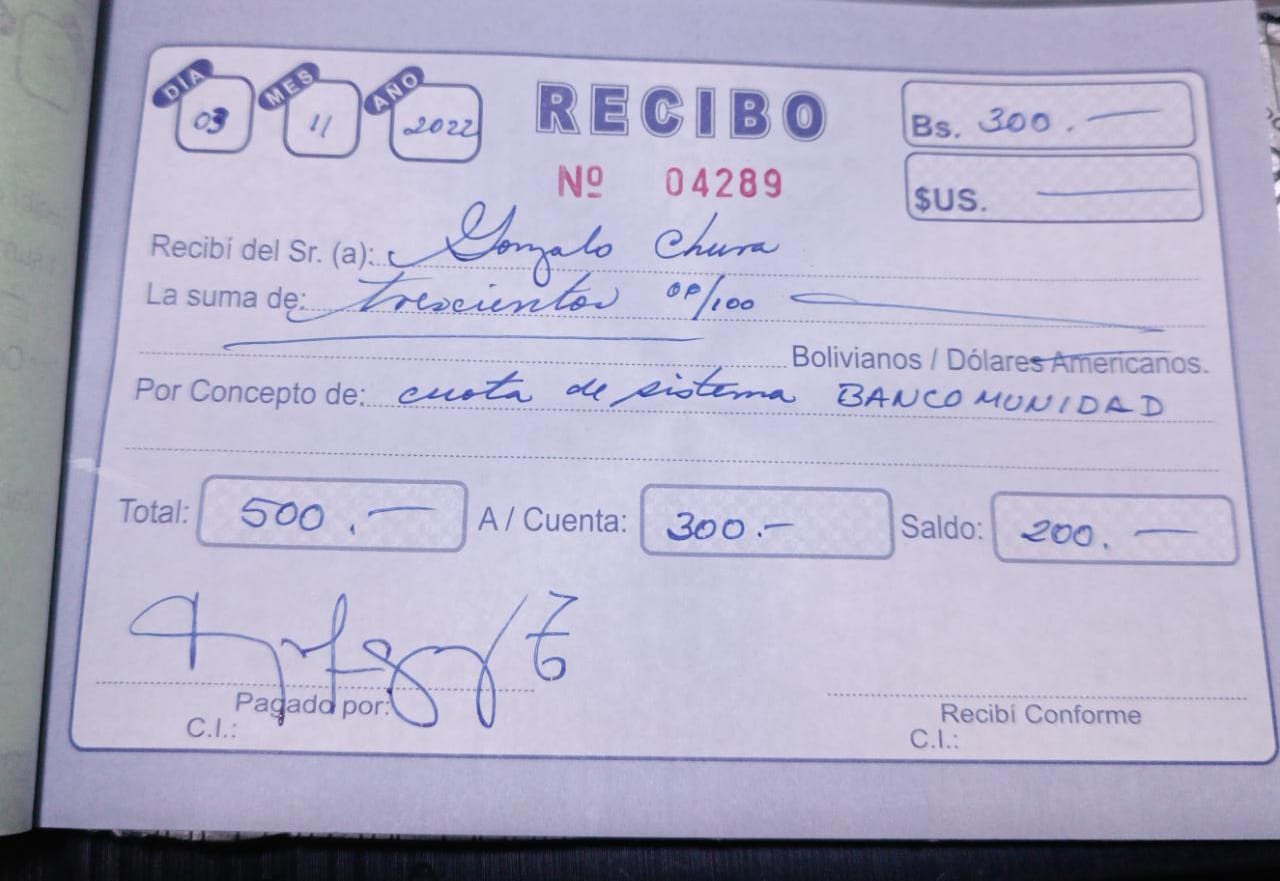 DÍA MES AÑO
03 11 2022
RECIBO
Nº 04289
Bs. 300.-
$US. -
Recibí del Sr. (a): Gonzalo Chura
La suma de: trescientos 00/100
Bolivianos / Dólares Americanos.
Por Concepto de: cuota de sistema BANCOMUNIDAD
Total: 500.- A / Cuenta: 300.- Saldo: 200.-
Pagado por:
C.I.:
Recibí Conforme
C.I.: